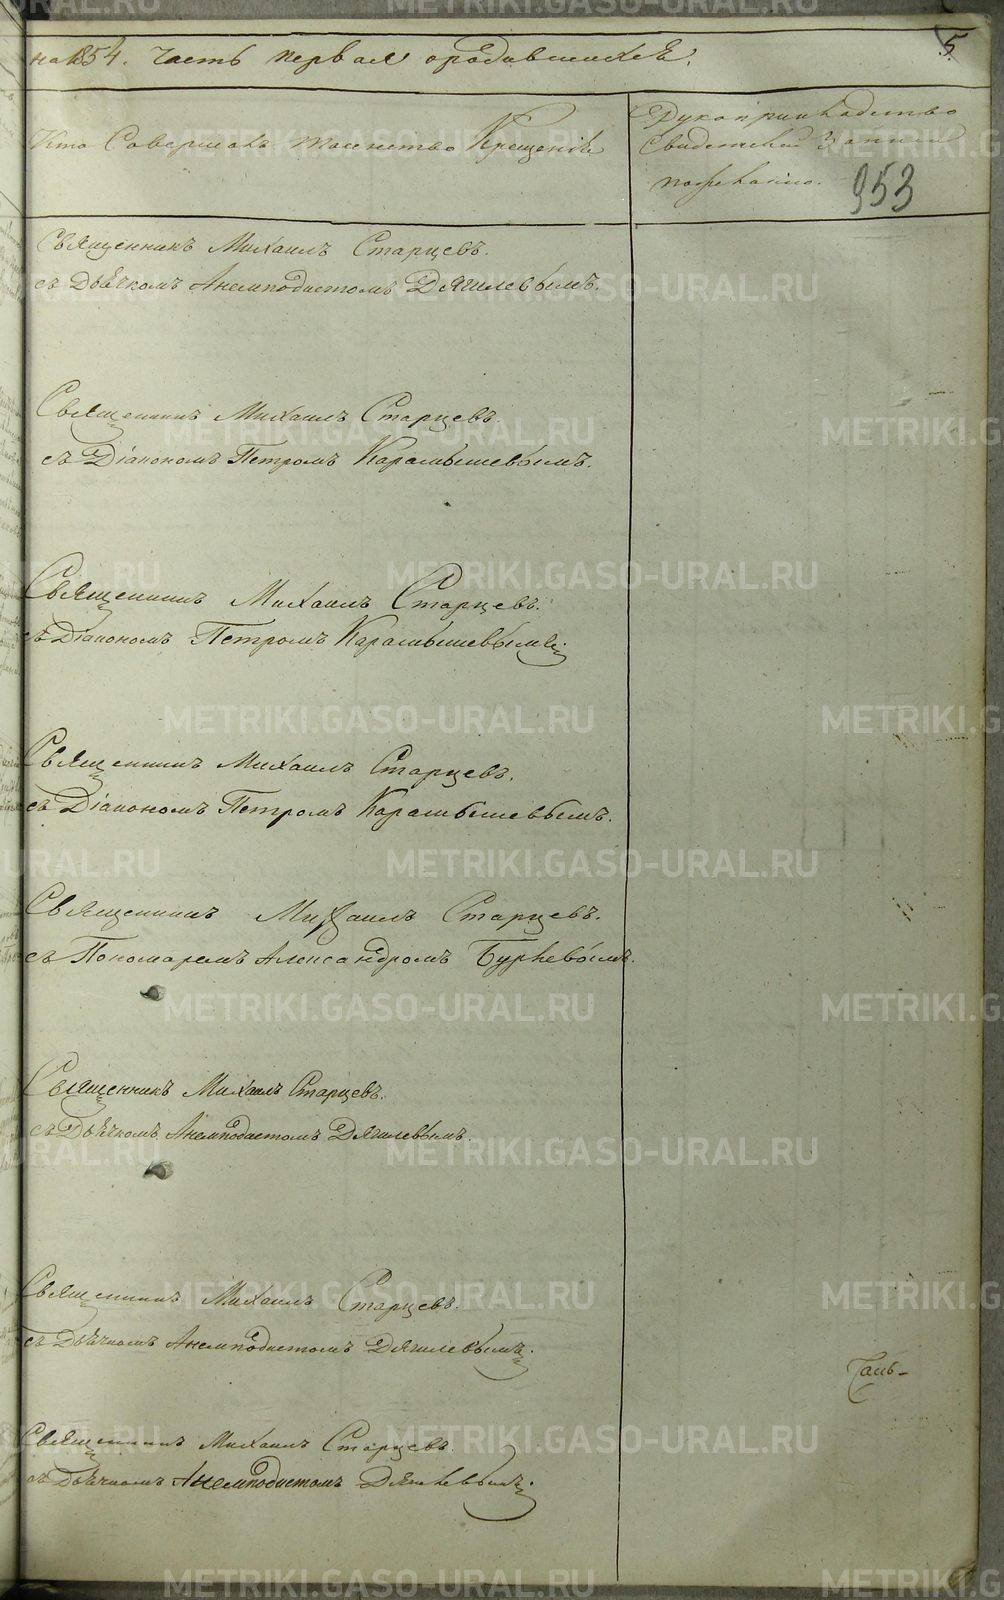 на 1854. часть первая ородившихся.
5.
Кто Совершалъ таинство Крещенія
Рукоприкладство
свидетелей записи
по желанію.
953
Священникъ Михаилъ Старцевъ.
съ Дьячкомъ Анемподистомъ Дягилевымъ.
Священникъ Михаилъ Старцевъ.
съ Діакономъ Петромъ Карамышевымъ.
Священникъ Михаилъ Старцевъ.
съ Діакономъ Петромъ Карамышевымъ.
Священникъ Михаилъ Старцевъ.
съ Діакономъ Петромъ Карамышевымъ.
Священникъ Михаилъ Старцевъ.
съ Пономаремъ Александромъ Бурневымъ.
Священникъ Михаилъ Старцевъ.
съ Дьячкомъ Анемподистомъ Дягилевымъ.
Священникъ Михаилъ Старцевъ.
съ Дьячкомъ Анемподистомъ Дягилевымъ.
Священникъ Михаилъ Старцевъ.
съ Дьячкомъ Анемподистомъ Дягилевымъ.
METRIKI.GASO-URAL.RU